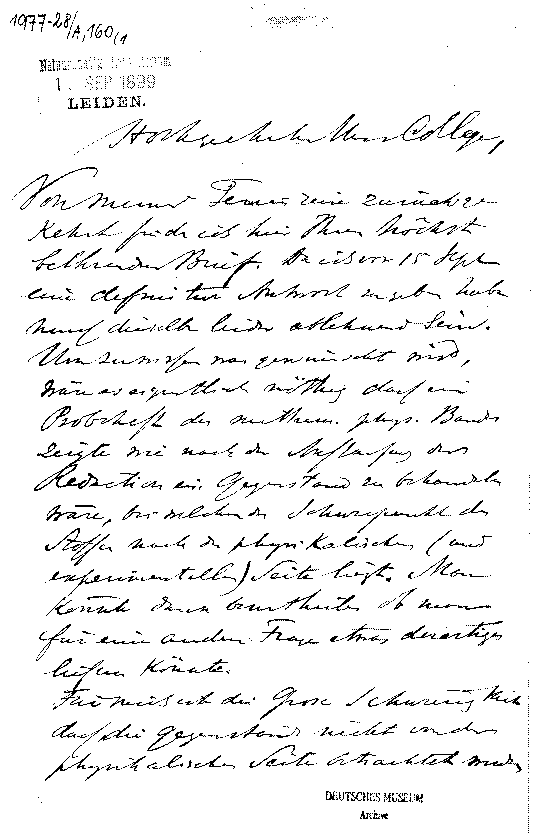 1977-28/A,160/1
1. SEP 1899
LEIDEN.
Hochgeehrter Herr College,
Von meiner Ferienreise zurückge-
kehrt finde ich hier Ihren höchst
Brief. Da ich vor 15 Sept
eine definitive Antwort zu geben habe
muss dieselbe leider ablehnend sein.
Um zu wissen was gewünscht wird,
wäre es eigentlich nöthig dass ein
Probeheft des mathem. phys. Bandes
zeigte wie nach der Auffassung der
Redaction ein Gegenstand zu behandeln
wäre, bei welchem der Schwerpunkt des
Stoffes nach der physikalischen (und
experimentellen) Seite liegt. Man
könnte dann beurtheilen ob man
für eine andere Frage etwas derartiges
liefern könnte.
Für mich ist die grosse Schwierigkeit
dass die Gegenstände nicht von der
physikalischen Seite betrachtet werden
DEUTSCHES MUSEUM
Archive